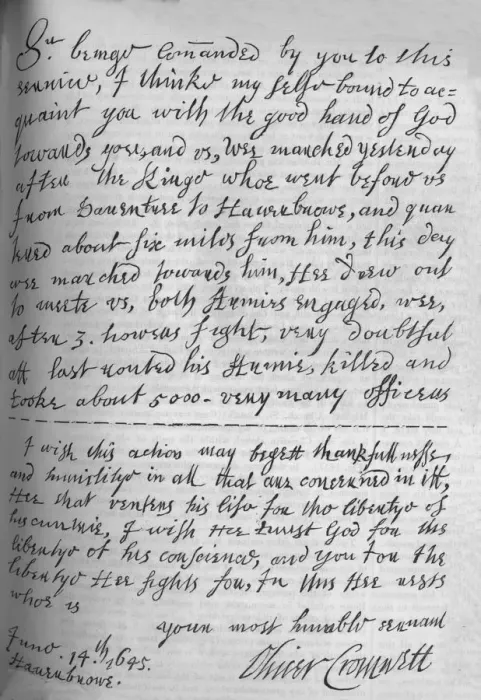 Sr. beinge comanded by you to this
service, I thinke my selfe bound to ac=
quaint you with the good hand of God
towards you, and vs, wee marched yesterday
after the Kinge whoe went before vs
from Dauentree to Hauerbrowe, and quar
tered about six miles from him, this day
wee marched towards him, Hee drew out
to meete vs, both Armies engaged, wee,
after 3. howers fight, very doubtful
att last routed his Armie, killed and
tooke about 5000. very many officers
I wish this action may begett thankfullnesse,
and humilitye in all that are concerned in itt,
Hee that venters his life for the libertye of
his cuntrie, I wish Hee trust God for the
libertye of his conscience, and you for the
libertye Hee fights for, In this Hee rests
whoe is
your most humble servant
Oliver Cromwell
June. 14.th 1645.
Hauerbrowe.